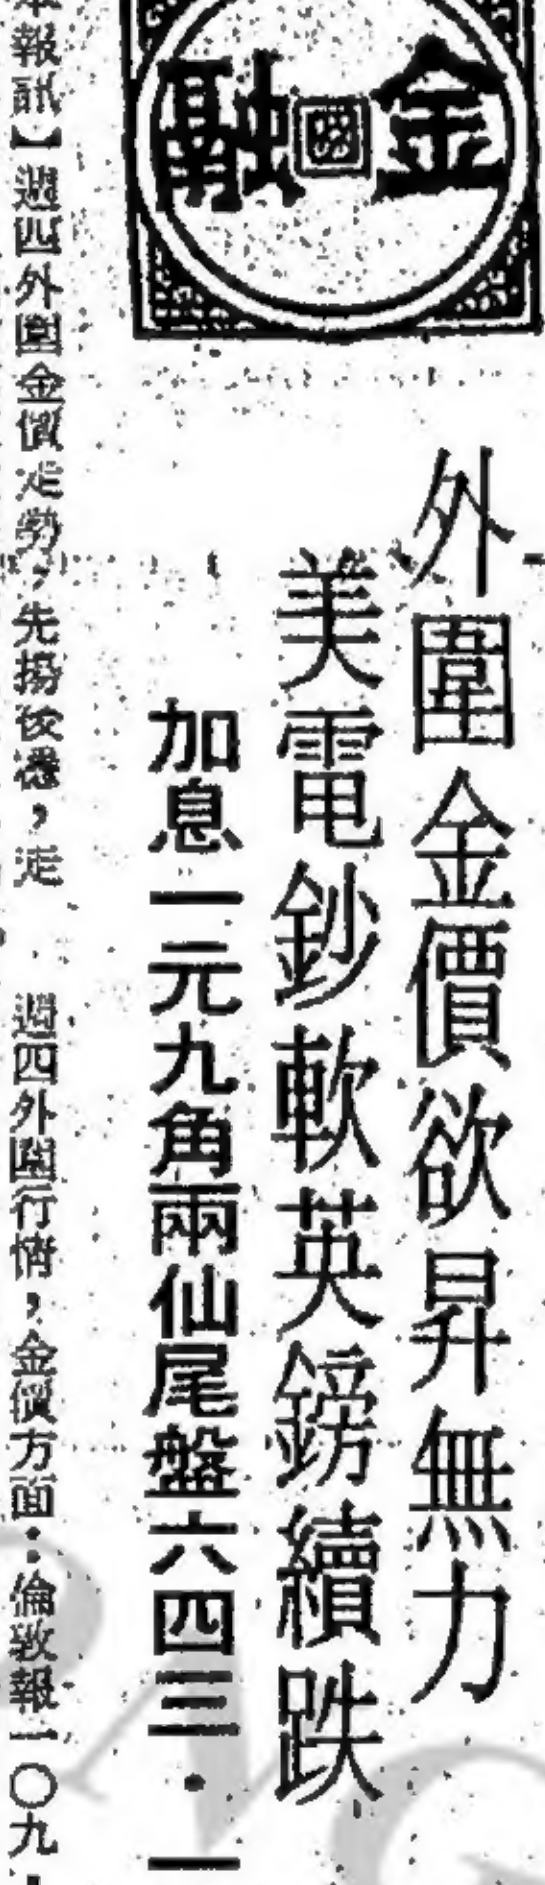 金融
外圍金價欲昇無力
美電鈔軟英鎊續跌
加息一元九角兩仙尾盤六四三・一
本報訊】週四外圍金價走勢，先揚後穩，走
週四外圍行情，金價方面：倫敦報一〇九・